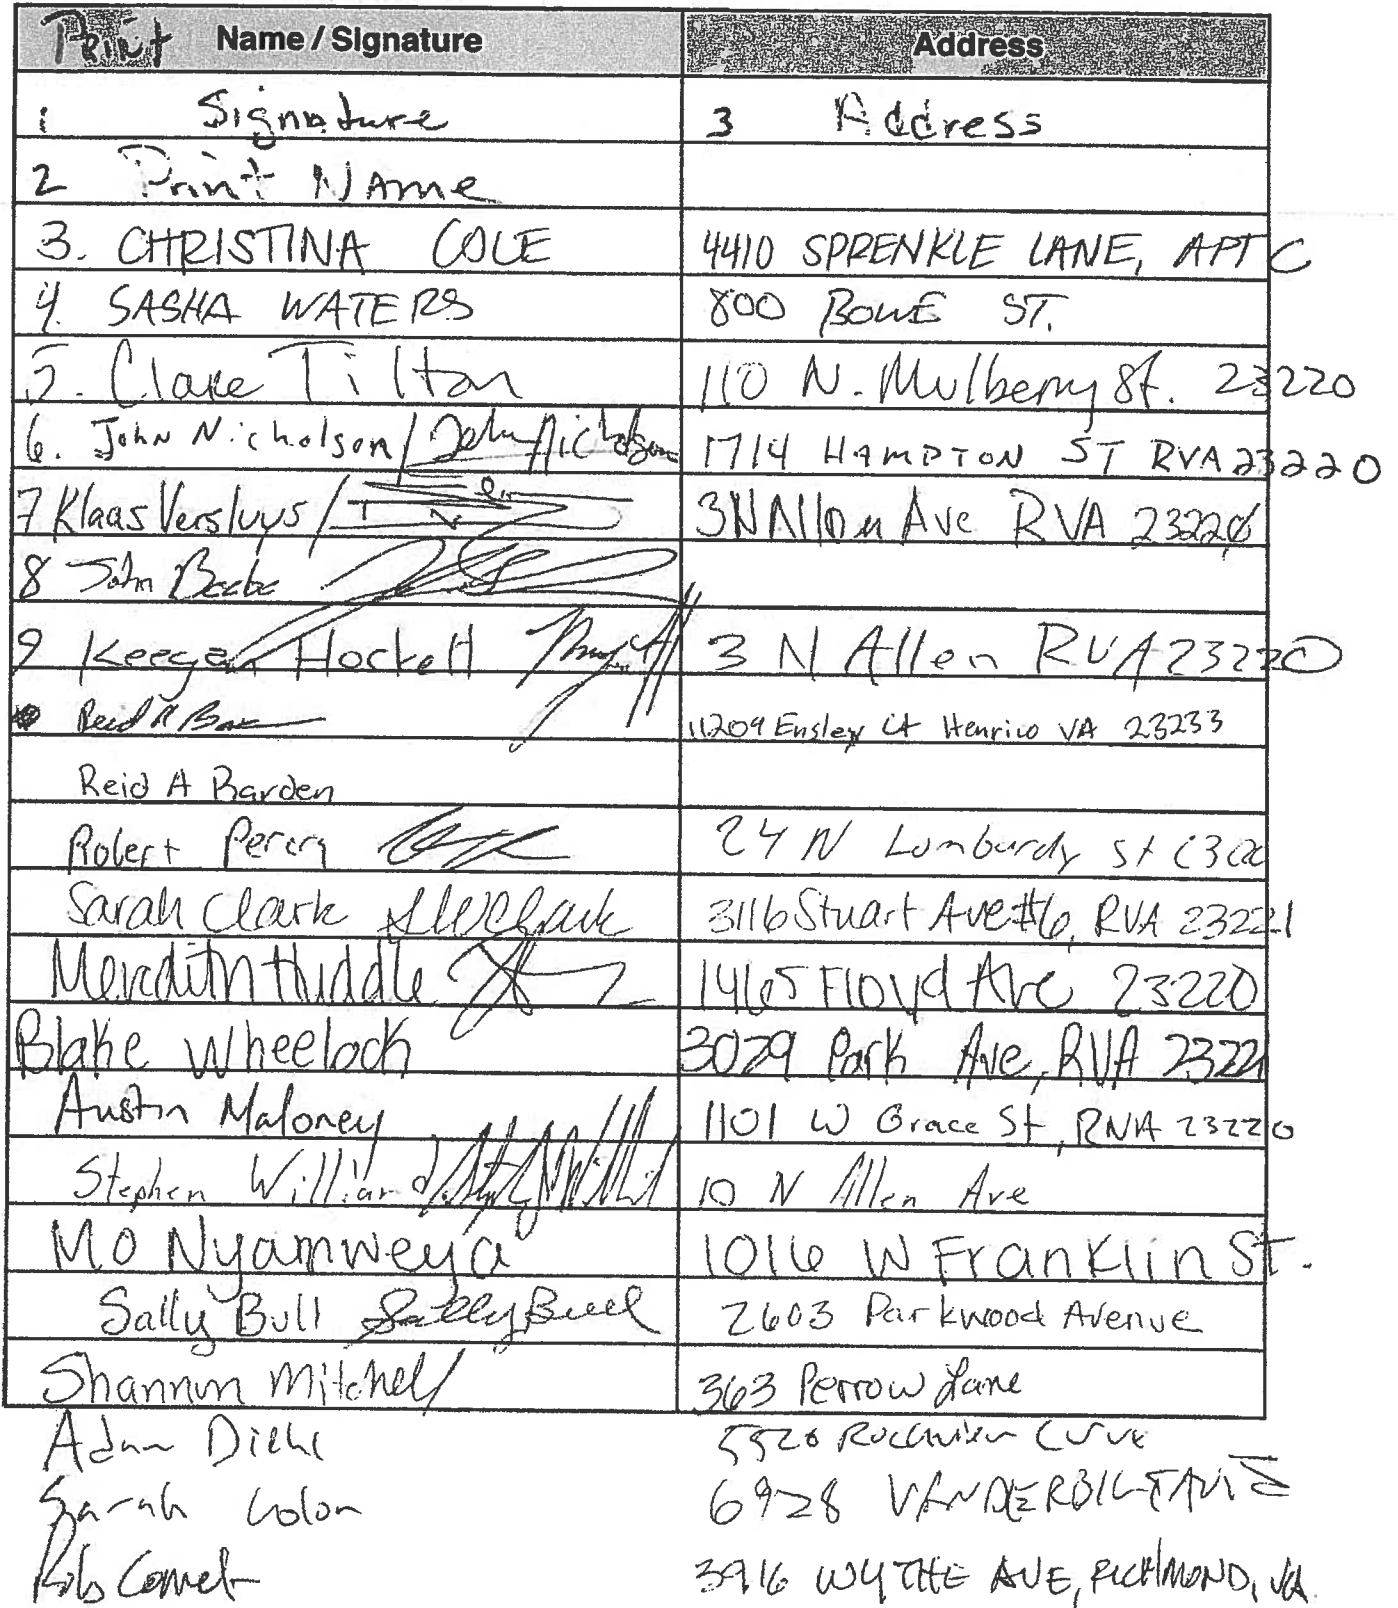 Print Name / Signature Address
1 Signature 3 Address
2 Print Name
3. CHRISTINA COLE 4410 SPRENKLE LANE, APT C
4. SASHA WATERS 800 BOWE ST.
5. Clare Tilton 110 N. Mulberry St. 23220
6. John Nicholson / John Nicholson 1714 HAMPTON ST RVA 23220
7 Klaas Versluys / 3 N Allen Ave RVA 23220
8 John Beebe
9 Keegan Hockett 3 N Allen RVA 23220
Reid A 11209 Ensley Ct Henrico VA 23233
Reid A Barden
Robert 24 N Lombardy St
Sarah Clark 3116 Stuart Ave #6, RVA 23221
Meredith Huddle 1465 Floyd Ave 23220
Blake Wheelock 3029 Park Ave, RVA 23221
Austin Maloney 1101 W Grace St, RVA 23220
Stephen Williard 10 N Allen Ave
Mo Nyamweya 1016 W Franklin St.
Sally Bull Sally Bull 2603 Parkwood Avenue
Shannon Mitchell 363 Perrow Lane
Adam 5520
Sarah Colon 6928 VANDERBILT AVE
3916 WYTHE AVE, RICHMOND, VA.